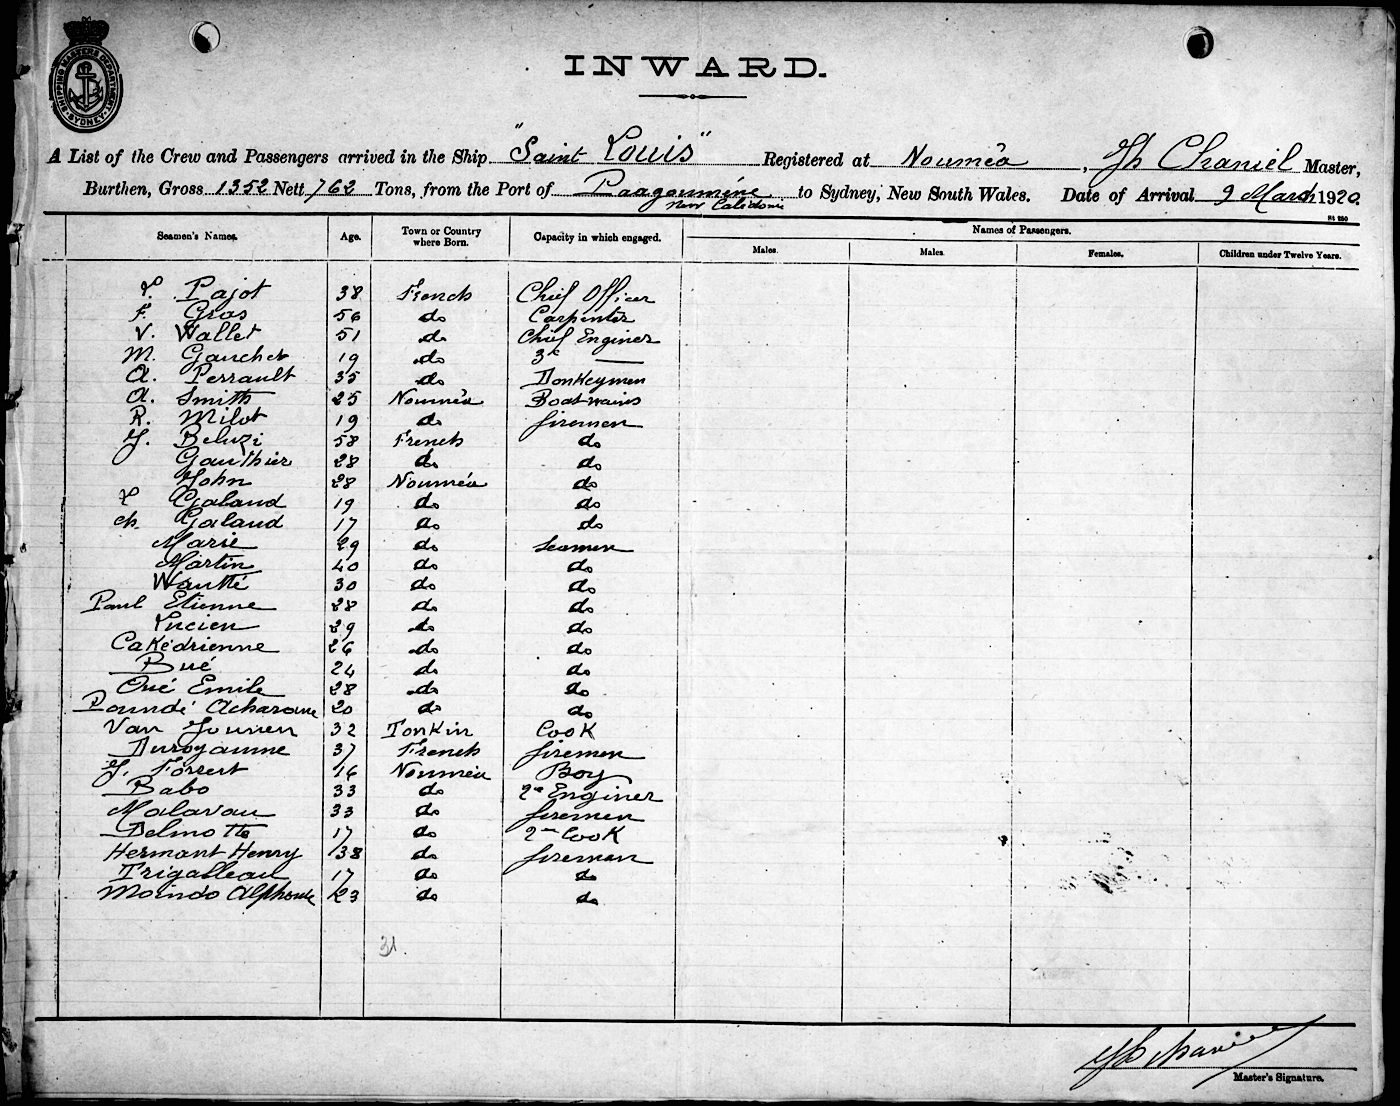 SHIPPING MASTERS DEPARTMENT SYDNEY
INWARD.
A List of the Crew and Passengers arrived in the Ship "Saint Louis" Registered at Nouméa, Jh Chaniel Master,
Burthen, Gross 1352 Nett 762 Tons, from the Port of Paagoumène to Sydney, New South Wales. Date of Arrival 9 March 1920.
New Caledonie
Seamen's Names. Age. Town or Country where Born. Capacity in which engaged. Names of Passengers.
Males. Males. Females. Children under Twelve Years.
Pajot 38 French Chief Officer
F. Gras 56 do Carpenter
V. Wallet 51 do Chief Enginer
M. Gaucher 19 do 3e —
A. Perrault 35 do Donkeymen
A. Smith 25 Nouméa Boatswains
R. Milot 19 do firemen
J. Beluzi 58 French do
Gauthier 28 do do
John 28 Nouméa do
L Galaud 19 do do
ch. Galaud 17 do do
Marie 29 do seamen
Martin 40 do do
Wautté 30 do do
Paul Etienne 28 do do
Lucien 29 do do
Cakédrienne 26 do do
Bué 24 do do
Oué Emile 28 do do
Poundé 20 do do
Van 32 Tonkin Cook
Duroyaume 37 French firemen
J. Forrest 16 Nouméa Boy
Babo 33 do 2e Enginer
Malavau 33 do firemen
Delmotte 17 do 2me Cook
Hermant Henry 38 do fireman
Trigalleau 17 do do
Moindo Alphonse 23 do do
31
Jh Chaniel
Master's Signature.